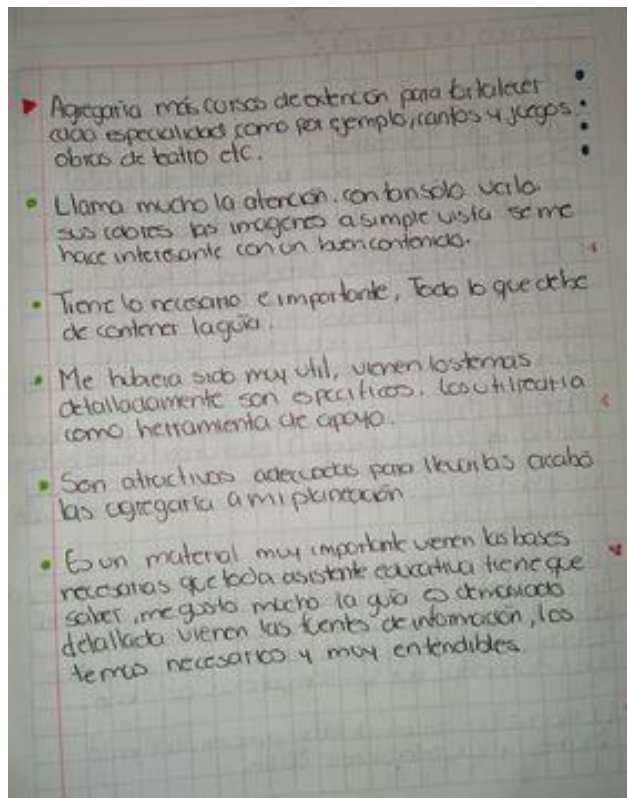 Agregaria más cursos de extención para fortalecer
cada especialidad como por ejemplo, cantos y juegos.
obras de teatro etc.
Llama mucho la atención. con tan solo verla.
sus colores las imagenes a simple vista se me
hace interesante con un buen contenido.
Tiene lo necesario e importante, Todo lo que debe
de contener la guía.
Me hubiera sido muy util, vienen los temas
detalladamente son especificos. Los utilizaria
como herramienta de apoyo.
Son atractivas adecuadas para llevarlas acabó
las agregaría a mi planeación
Es un material muy importante vienen las bases
necesarias que toda asistente educativa tiene que
saber, me gusto mucho la guía es demasiado
detallada vienen las fuentes de información, los
temas necesarios y muy entendibles.